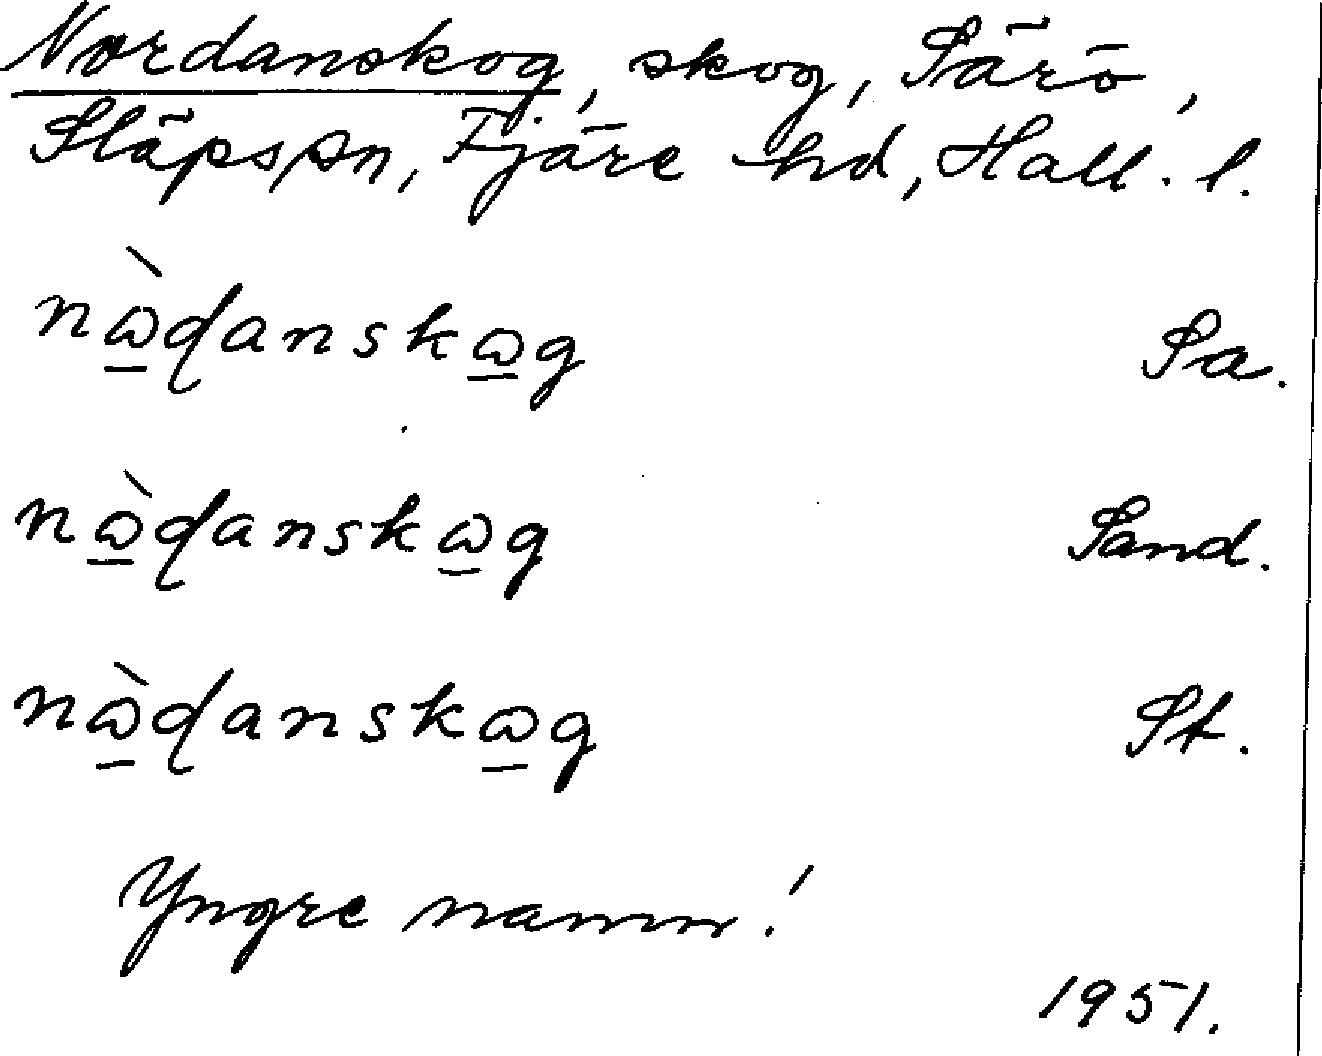 Nordanskog, skog, Särö,
Släps sn, Fjäre hd, Hall. l.
nὼ̲ɖanskω̲g Sa.
nὼ̲ɖanskω̲g Sand.
nὼ̲ɖanskω̲g St.
Yngre namn!
1951.